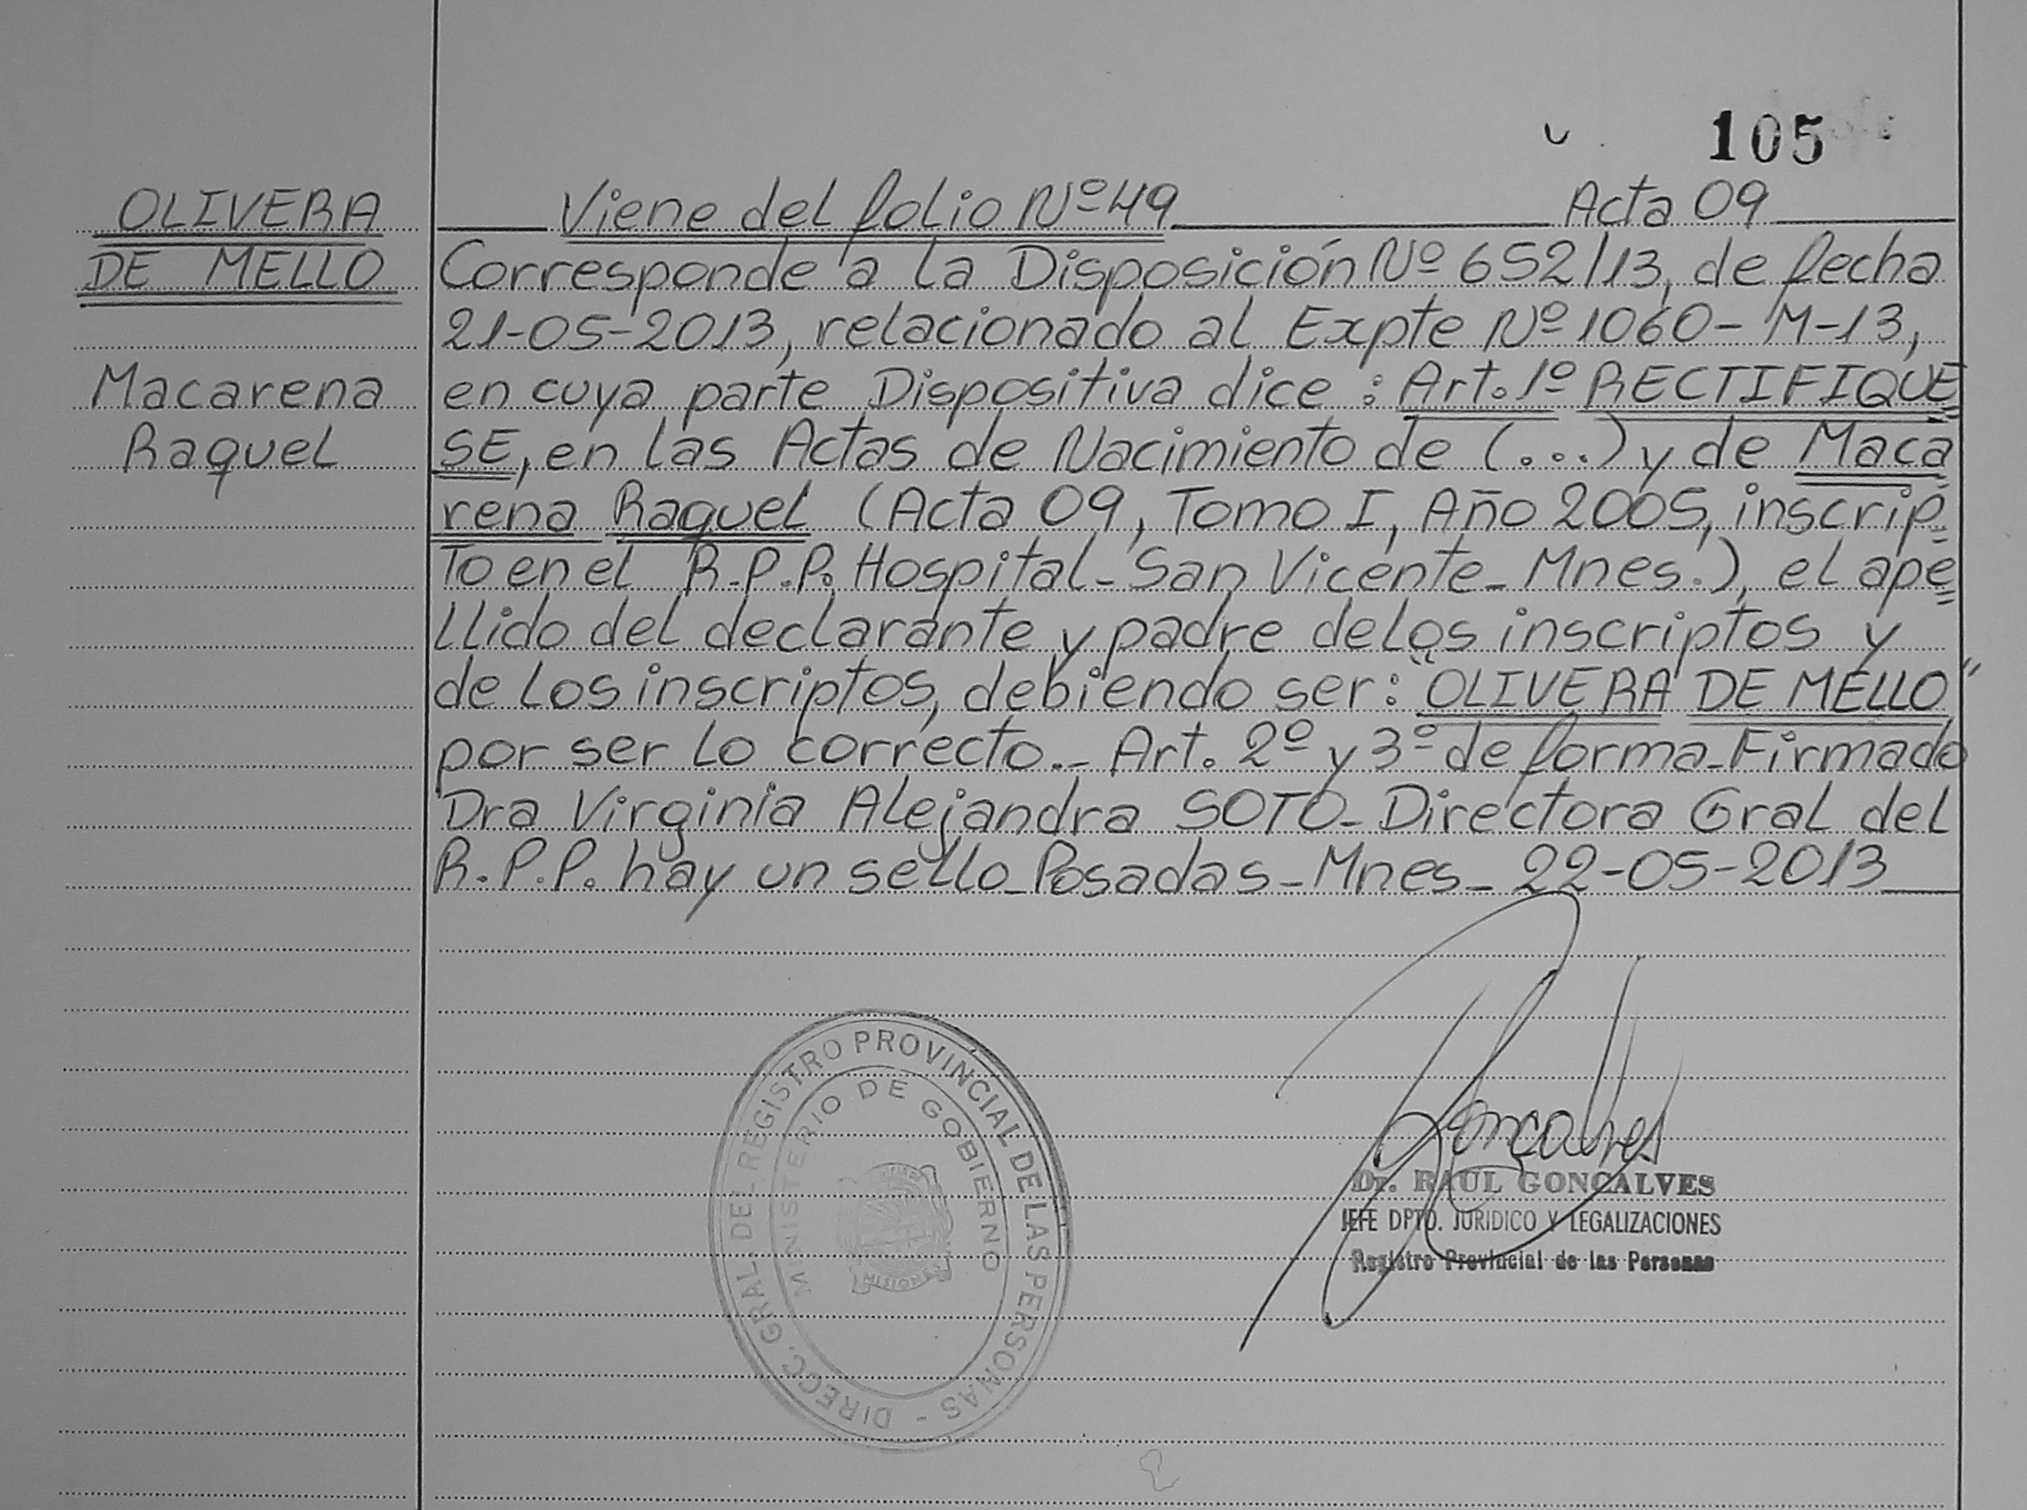 105
OLIVERA
DE MELLO
Macarena
Raquel
Viene del folio Nº 49 Acta 09
Corresponde a la Disposición Nº 652/13, de fecha
21-05-2013, relacionado al Expte Nº 1060-M-13,
en cuya parte Dispositiva dice: Art. 1º RECTIFIQUE
SE, en las Actas de Nacimiento de (...) y de Maca
rena Raquel (Acta 09, Tomo I, Año 2005, inscrip=
to en el R.P.P. Hospital-San Vicente-Mnes.), el ape=
llido del declarante y padre de los inscriptos y
de los inscriptos, debiendo ser: "OLIVERA DE MELLO"
por ser lo correcto.- Art. 2º y 3º de forma-Firmado
Dra Virginia Alejandra SOTO-Directora Gral del
R.P.P. hay un sello-Posadas-Mnes- 22-05-2013
DIRECC. GRAL. DEL REGISTRO PROVINCIAL DE LAS PERSONAS -
MINISTERIO DE GOBIERNO
MISIONES
Goncalves
Dr. RAUL GONCALVES
JEFE DPTO. JURIDICO Y LEGALIZACIONES
Registro Provincial de las Personas